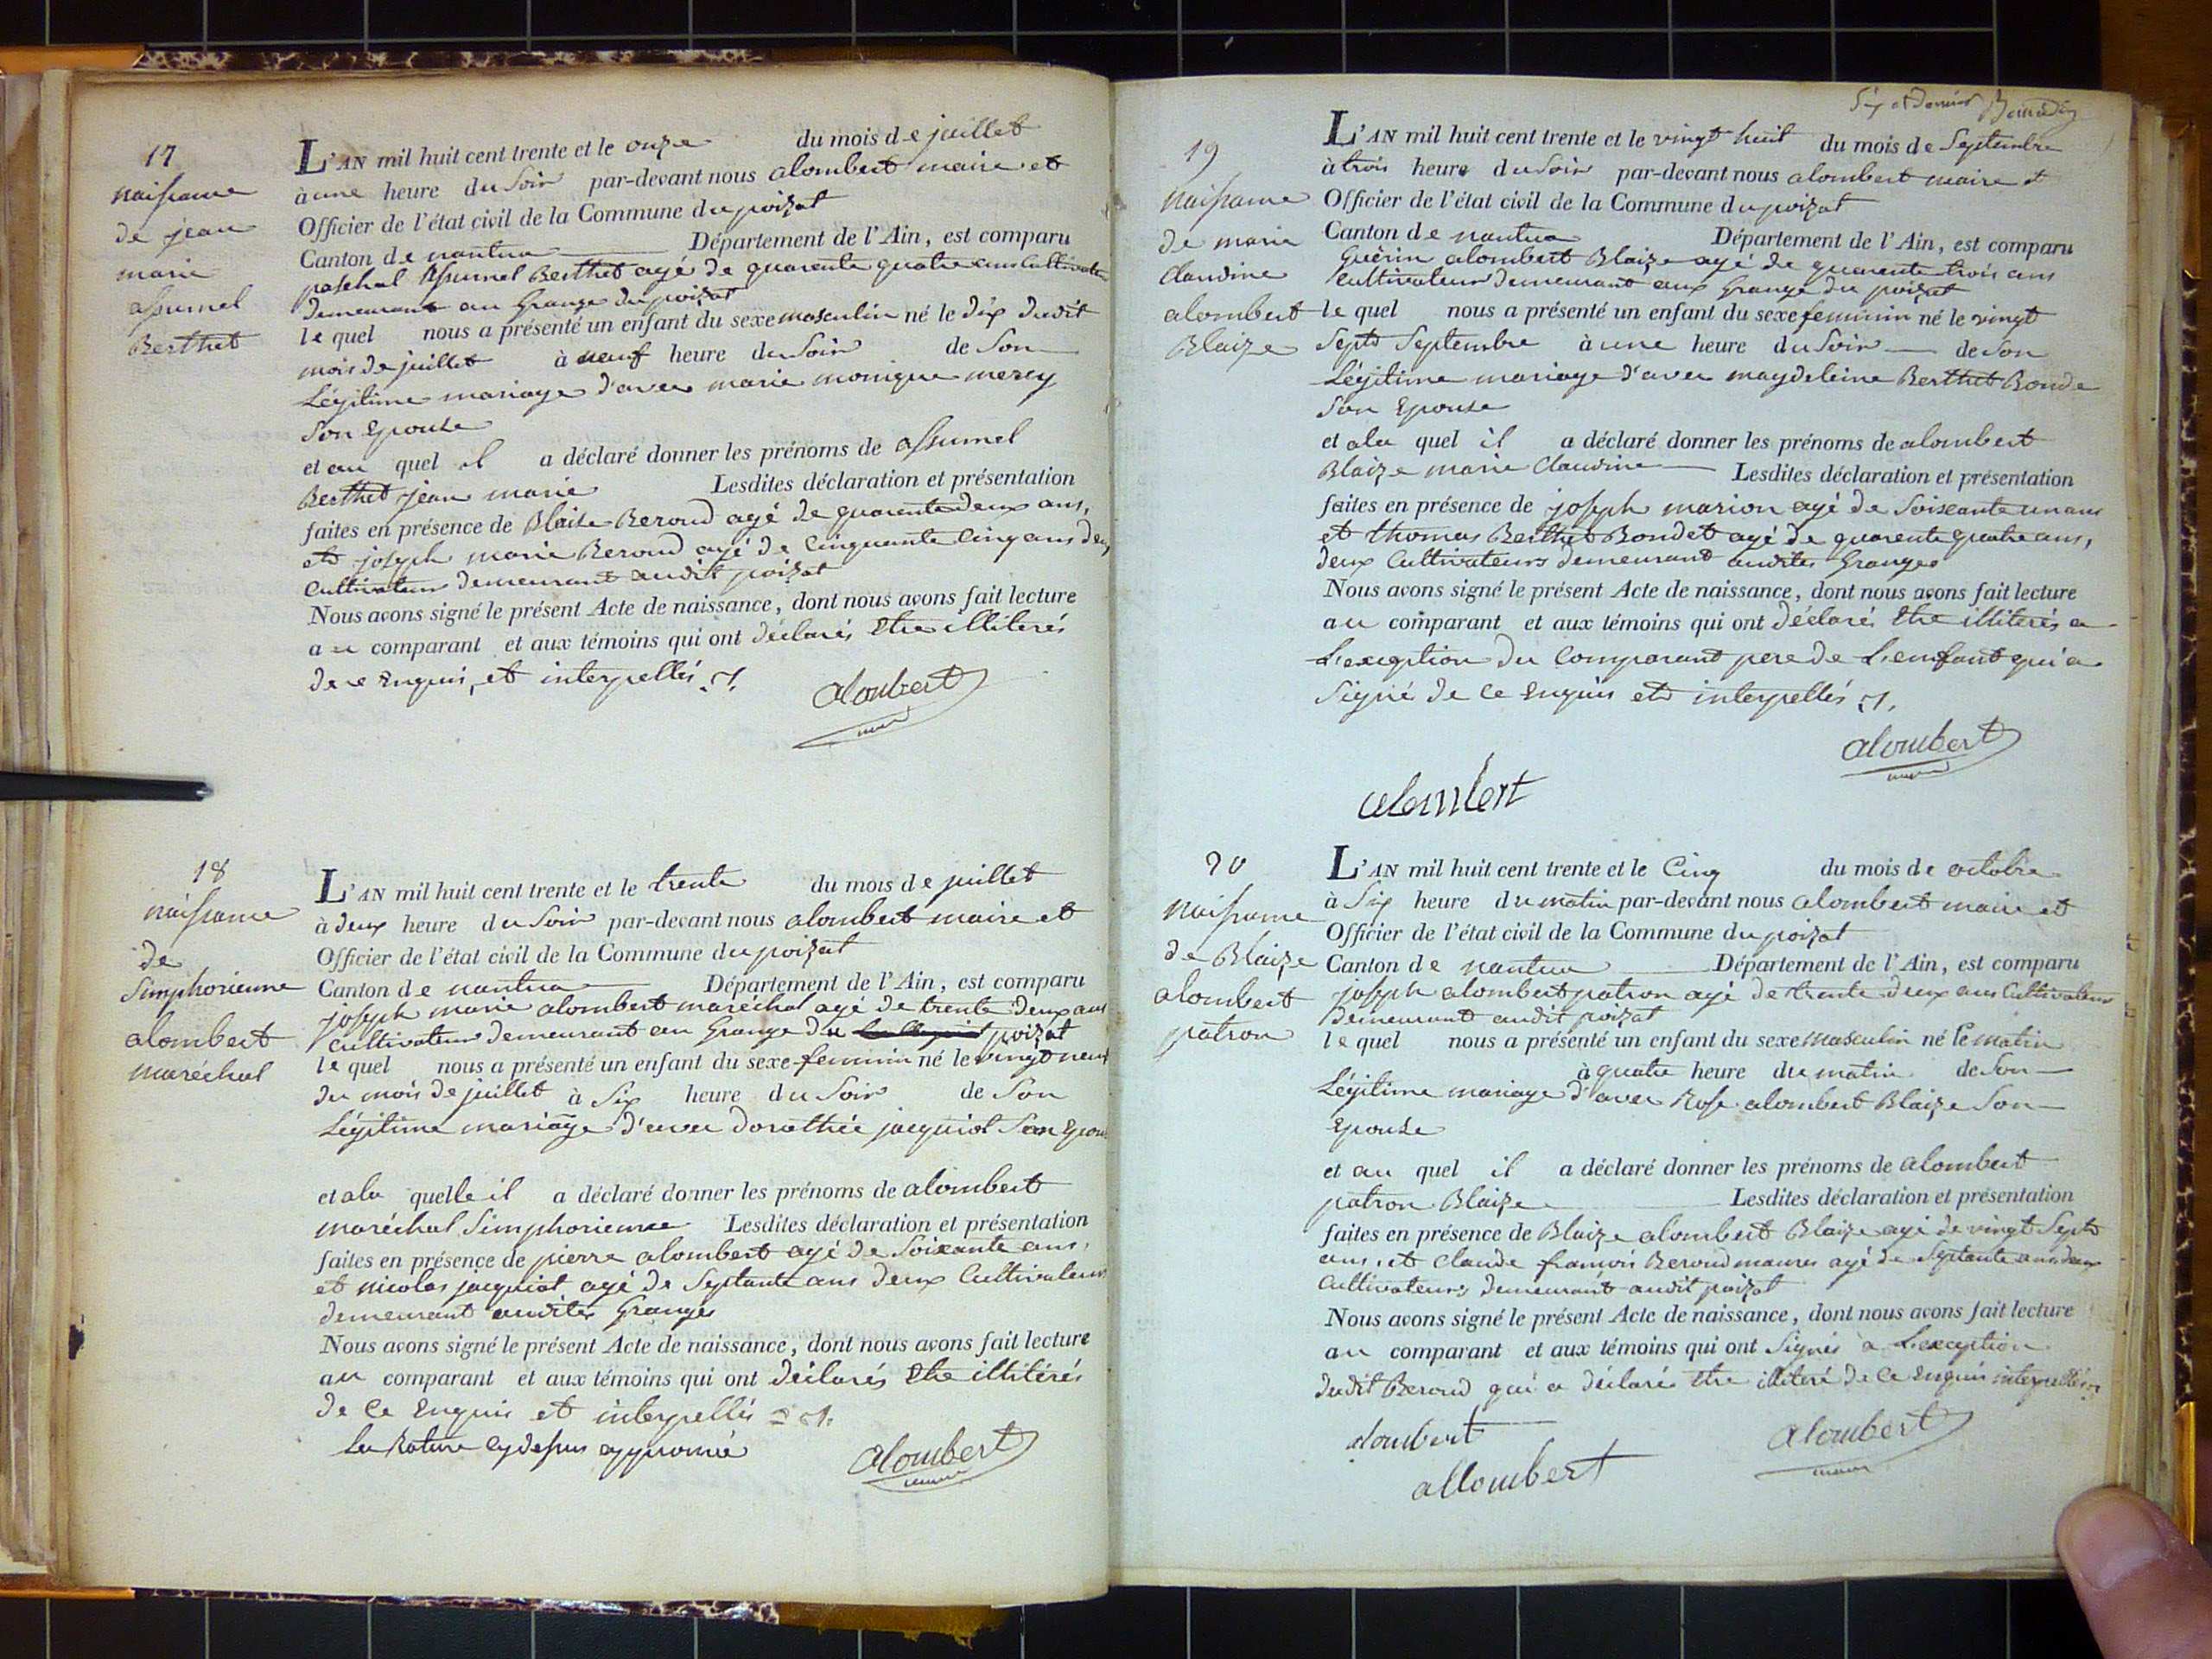 17
naissance
de jean
marie
assumel
Berthet
L'AN mil huit cent trente et le onze du mois de juillet
à une heure du Soir par-devant nous alombert maire et
Officier de l'état civil de la Commune du poizat
Canton de nantua Département de l'Ain, est comparu
paschal Assumel Berthet agé de quarente quatre ans Cultivateur
demeurant au Grange du poizat
lequel nous a présenté un enfant du sexe masculin né le dix dudit
mois de juillet à neuf heure du Soir de Son
Légitime mariage d'avec marie monique mercy
Son Epouse
et au quel il a déclaré donner les prénoms de assumel
Berthet jean marie Lesdites déclaration et présentation
faites en présence de Blaise Beroud agé de quarente deux ans,
et joseph marie Beroud agé de Cinquante Cinq ans deux
Cultivateurs demeurant audit poizat
Nous avons signé le présent Acte de naissance, dont nous avons fait lecture
au comparant et aux témoins qui ont déclarés Etre illiterés
de ce Enquis, et interpellés
alombert
18
naissance
de
Simphorienne
alombert
maréchal
L'AN mil huit cent trente et le trente du mois de juillet
à deux heure du Soir par-devant nous alombert maire et
Officier de l'état civil de la Commune du poizat
Canton de nantua Département de l'Ain, est comparu
joseph marie alombert maréchal agé de trente deux ans
Cultivateur demeurant au Grange du poizat
lequel nous a présenté un enfant du sexe feminin né le vingt neuf
du mois de juillet à Six heure du Soir de Son
Légitime mariage d'avec Dorothée jacquiot Son Epouse
et a la quelle il a déclaré donner les prénoms de alombert
maréchal Simphorienne Lesdites déclaration et présentation
faites en présence de pierre alombert agé de Soixante ans,
et nicolas jacquiot agé de Septante ans deux Cultivateurs
demeurant audites Granges
Nous avons signé le présent Acte de naissance, dont nous avons fait lecture
au comparant et aux témoins qui ont déclarés Etre illitérés
de Ce Enquis et interpellés
La Rature Cydessus approuvée
alombert
Six et Dernier
19
naissance
de marie
Claudine
alombert
Blaize
L'AN mil huit cent trente et le vingt huit du mois de Septembre
à trois heure du Soir par-devant nous alombert maire et
Officier de l'état civil de la Commune du poizat
Canton de nantua Département de l'Ain, est comparu
Guérin alombert Blaize agé de quarente trois ans
Cultivateur demeurant aux Grange du poizat
lequel nous a présenté un enfant du sexe feminin né le vingt
Sept Septembre à une heure du Soir de Son
Légitime mariage d'avec magdeleine Berthet Bonde
Son Epouse
et a la quel il a déclaré donner les prénoms de alombert
Blaize marie Claudine Lesdites déclaration et présentation
faites en présence de joseph marion agé de Soixante un ans
et thomas Berthet Bondet agé de quarente quatre ans,
deux Cultivateurs demeurant audites Granges
Nous avons signé le présent Acte de naissance, dont nous avons fait lecture
au comparant et aux témoins qui ont déclarés Etre illiterés a
L'exception du Comparant pere de L'enfant qui a
Signé de Ce Enquis et interpellés
alombert
alombert
20
naissance
de Blaize
alombert
patron
L'AN mil huit cent trente et le Cinq du mois de octobre
à Six heure du matin par-devant nous alombert maire et
Officier de l'état civil de la Commune du poizat
Canton de nantua Département de l'Ain, est comparu
joseph alombert patron agé de trente deux ans Cultivateur
demeurant audit poizat
lequel nous a présenté un enfant du sexe masculin né le matin
à quatre heure du matin de Son
Légitime mariage d'avec Rose alombert Blaize Son
Epouse
et au quel il a déclaré donner les prénoms de alombert
patron Blaize Lesdites déclaration et présentation
faites en présence de Blaize alombert Blaize agé de vingt Sept
ans, et Claude françois Beroud maures agé de Septante ans deux
Cultivateurs demeurant audit poizat
Nous avons signé le présent Acte de naissance, dont nous avons fait lecture
au comparant et aux témoins qui ont Signés a L'exception
dudit Beroud qui a déclaré Etre illiteré de Ce Enquis interpellés
alombert
alombert
allombert